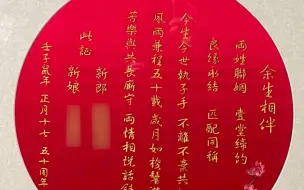 余生相伴
两姓聯姻 壹堂締約
良缘永結 匹配同稱
今生今世执子手 不離不弃共
風雨兼程五十載 歲月如梭鬓
芳樂與共長廝守 两情相悦話
此証
新郎
新娘
壬子鼠年 正月十七 五十周年